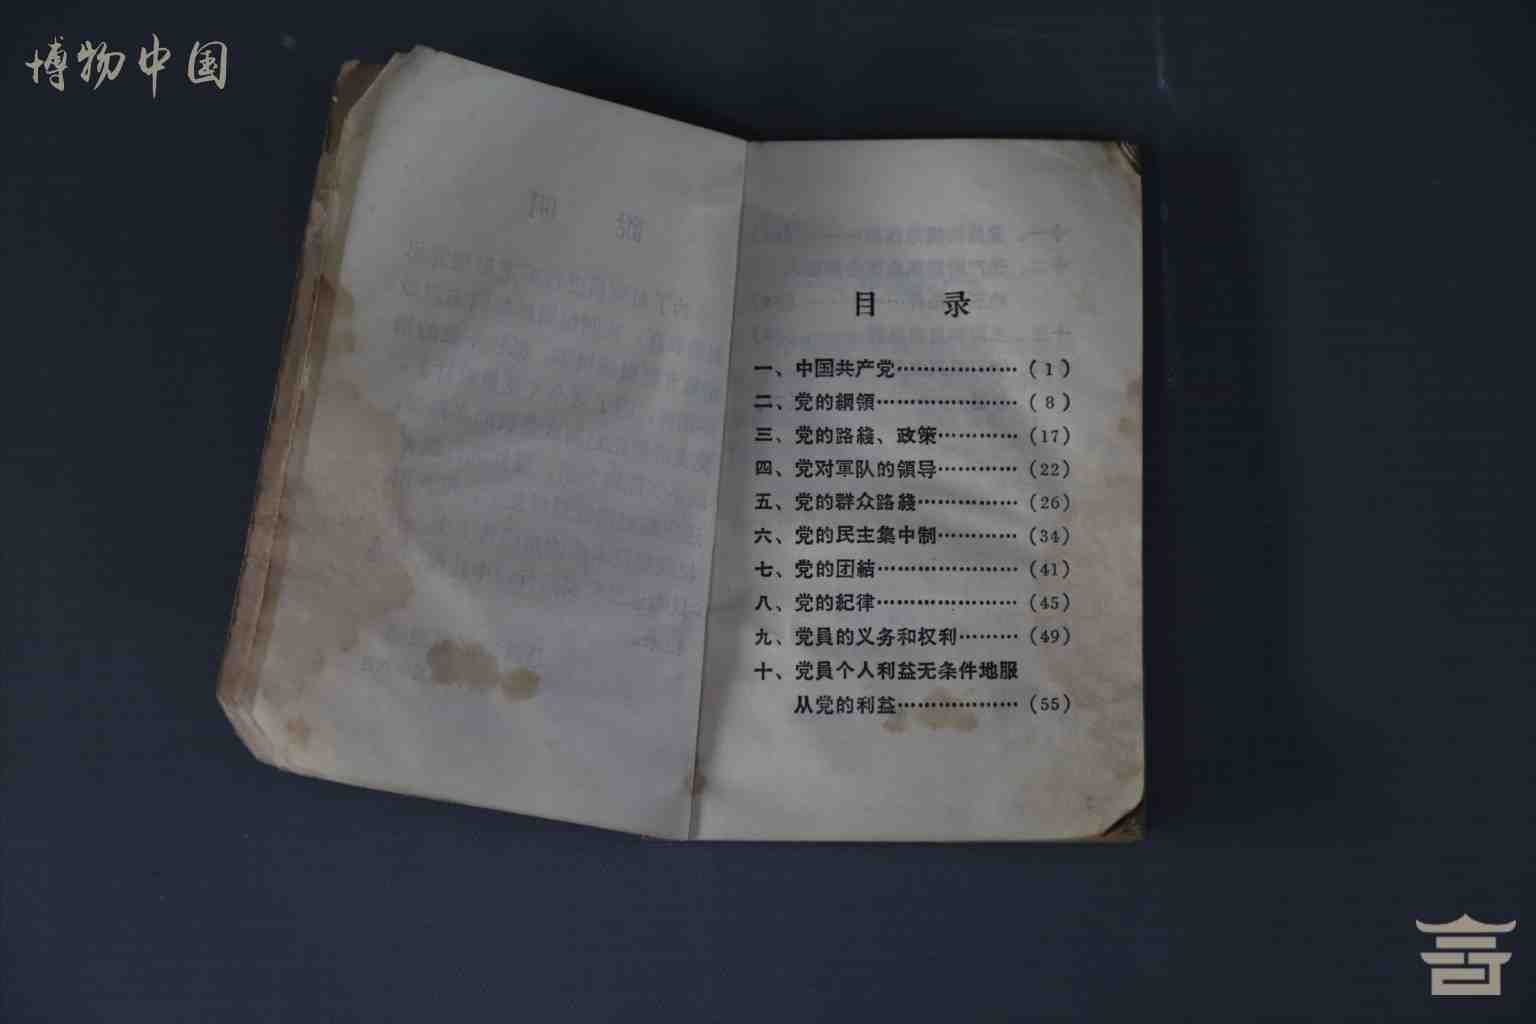 博物中国
目 录
一、中国共产党………………（1）
二、党的綱領…………………（8）
三、党的路綫、政策…………（17）
四、党对軍队的領导…………（22）
五、党的群众路綫……………（26）
六、党的民主集中制…………（34）
七、党的团結…………………（41）
八、党的紀律…………………（45）
九、党員的义务和权利………（49）
十、党員个人利益无条件地服
从党的利益………………（55）